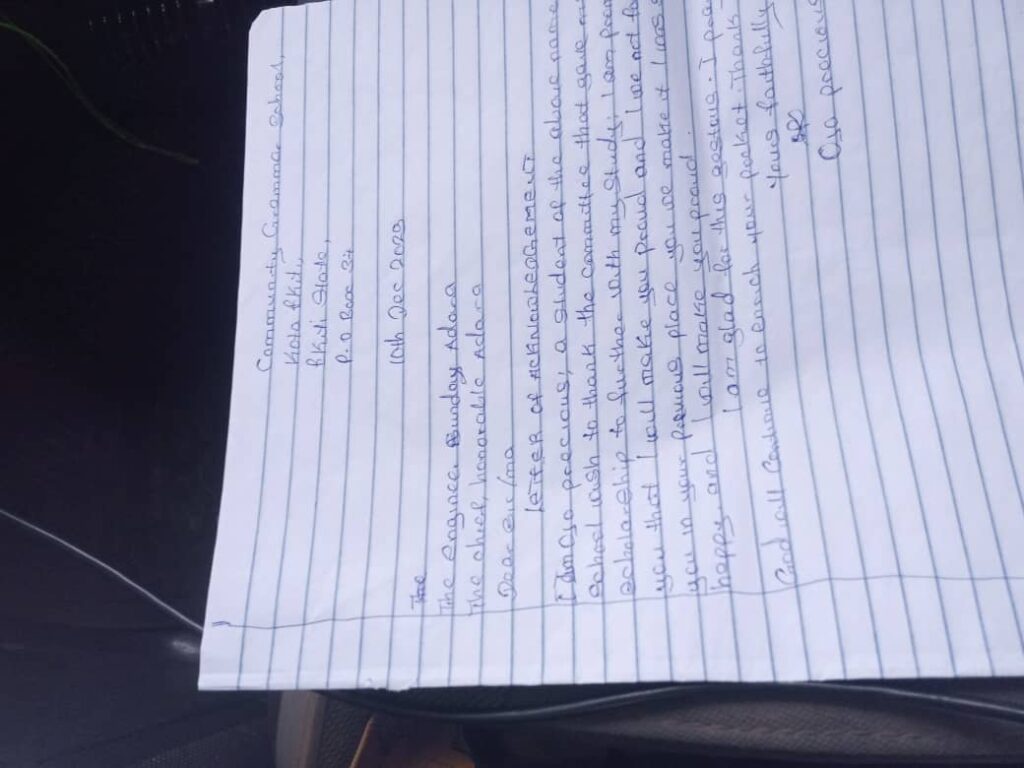 Community Grammar School,
Kota Ekiti,
Ekiti State,
P.O Box 34
10th Dec 2029
The
The engineer Sunday Adara
The chief, honorable Adara
Dear Sir/ma
LETTER OF ACKNOWLEDGEMENT
I am Ojo precious, a student of the above name
school wish to thank the committee that gave
scholarship to further with my study. I am
you that I will make you proud and I we not
you in your place you we make it
happy and I will make you proud.
I am glad for this gesture. I
God will continue to enrich your pocket. Thank
Yours faithfully
Ojo precious